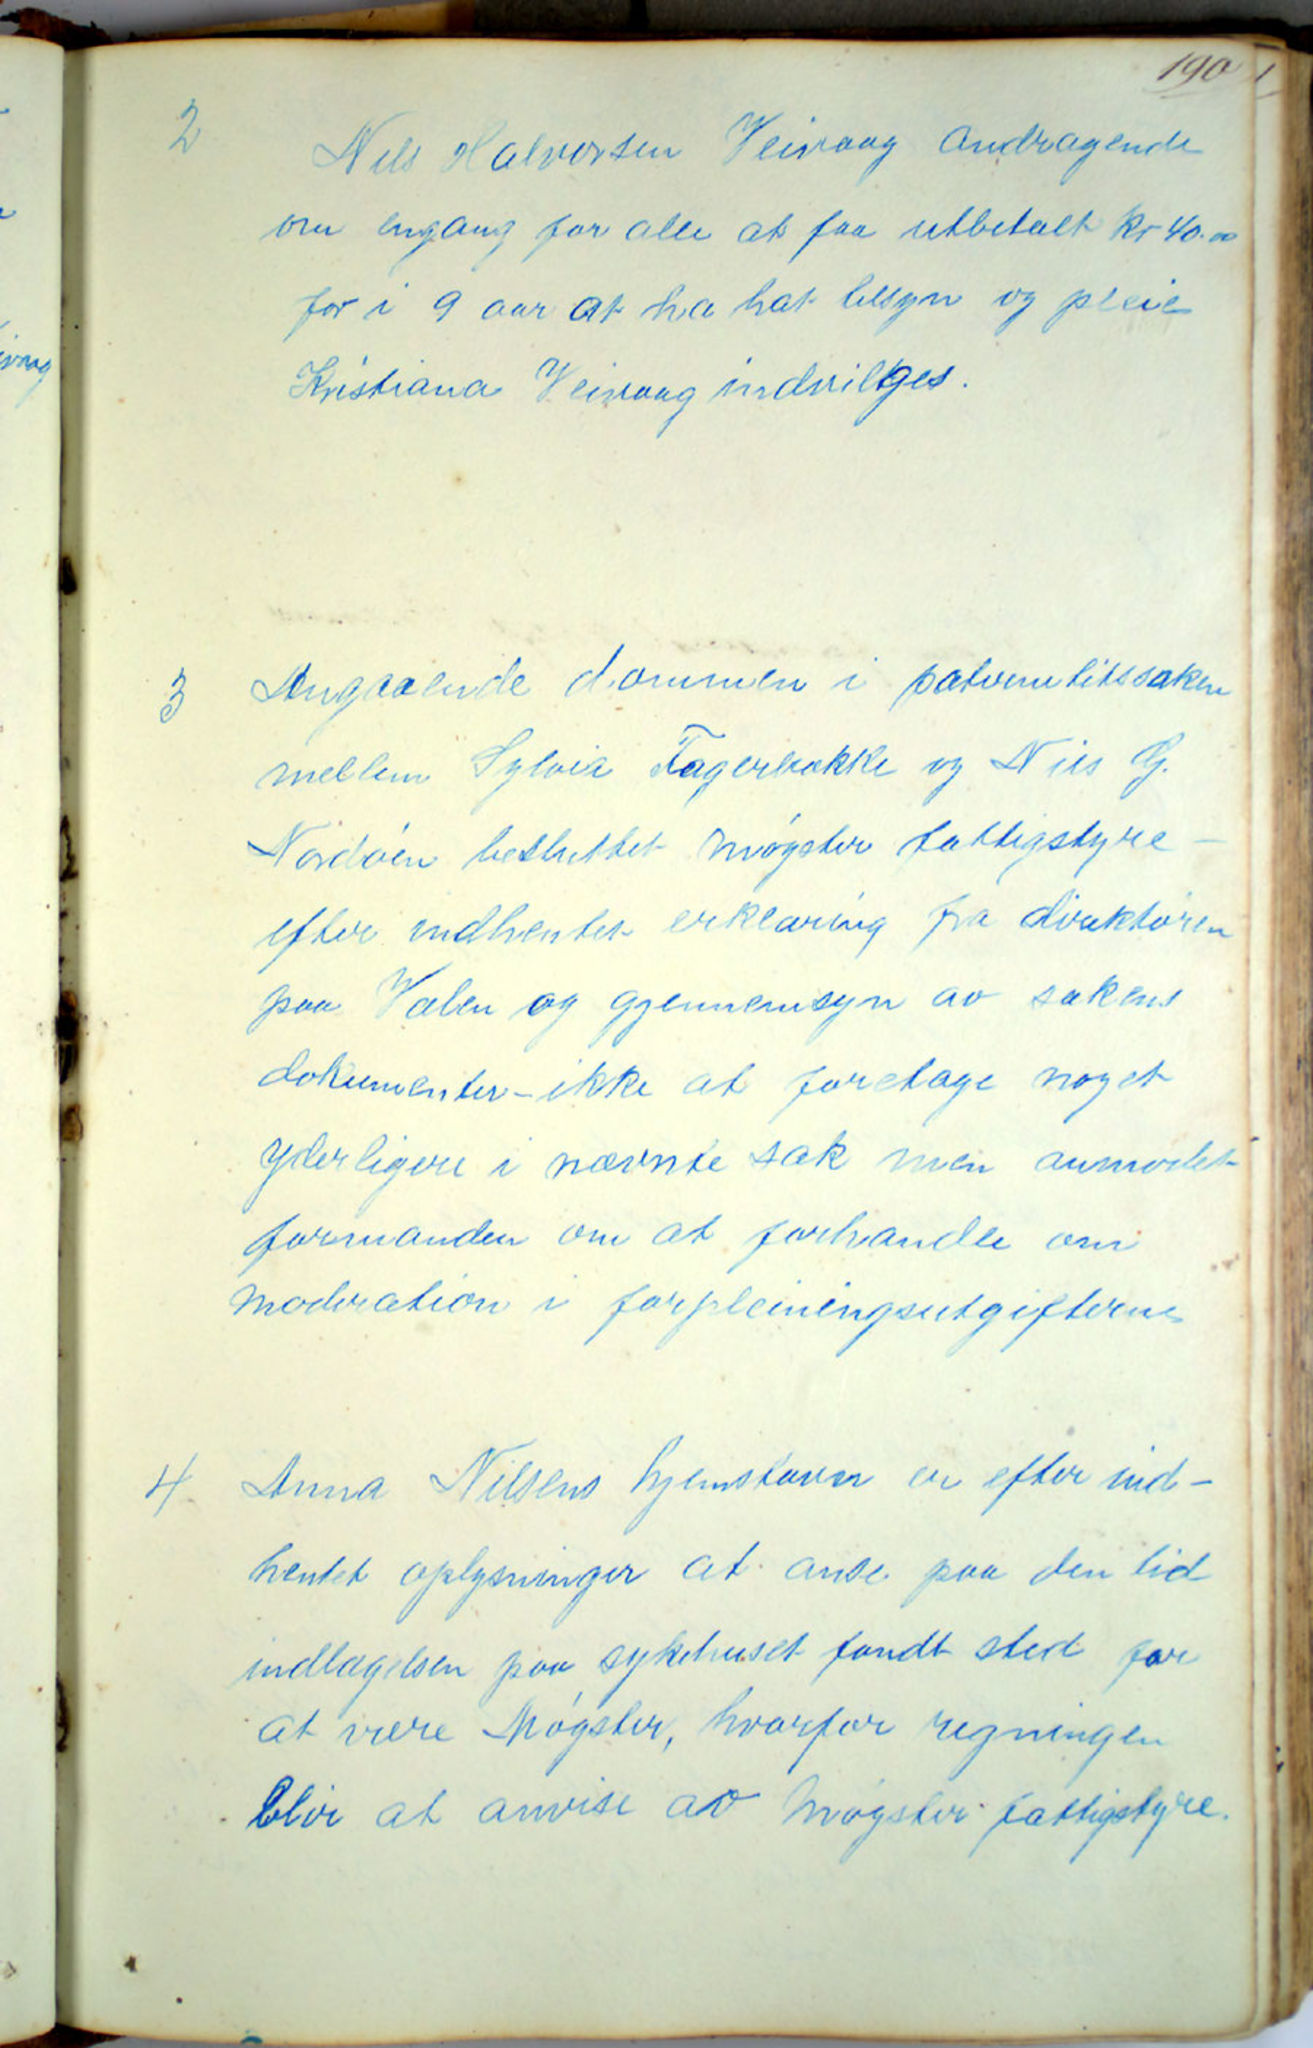 190
2
Nils Halvorsen Veivaag andragende
om engang for alle at faa utbetalt kr 40.00
for i 9 aar at ha hat tilsyn og pleie
Kristiana Veivaag indvilges.
3 Angaaende dommen i paternitetssaken
mellem Sylvia Fagerbakke og Nils G.
Nordöen besluttet Møgster fattigstyre –
efter indhentet erklæring fra direktøren
paa Valen og gjennemsyn av sakens
dokumenter – ikke at foretage noget
yderligere i nævnte sak men anmodet
formanden om at forhandle om
moderation i forpleiningsutgifterne
4 Anna Nilsens hjemstavn er efter ind-
hentet oplysninger at anse paa den tid
indlagelsen paa sykehuset fandt sted for
at være Møgster, hvorfor regningen
blir at anvise av Møgster fattigstyre.